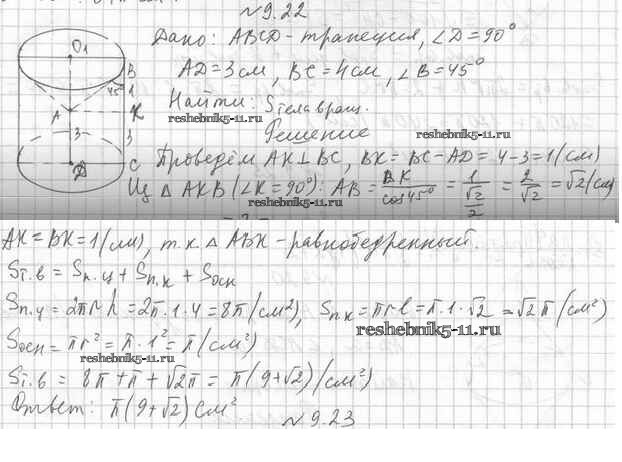 №9.22
Дано: ABCD - трапеция, ∠D=90°
AD=3см, BC=4см, ∠B=45°
Найти: Sтела вращ.
reshebnik5-11.ru
Решение
O1
B
45°
1
A
K
3
3
D
C
Проведём AK⊥BC, BK=BC-AD=4-3=1(см)
Из △AKB(∠K=90°): AB = BK/cos45° = 1/(√2/2) = 2/√2 = √2(см)
reshebnik5-11.ru
AK=BK=1(см), т.к △ABK - равнобедренный.
Sт.в = Sп.ц + Sп.к + Sосн
Sп.ц = 2πrh = 2π·1·4 = 8π(см²), Sп.к = πrl = π·1·√2 = √2π(см²)
reshebnik5-11.ru
Sосн = πr² = π·1² = π(см²)
reshebnik5-11.ru
Sт.в = 8π+π+√2π = π(9+√2)(см²)
Ответ: π(9+√2)см².
№9.23